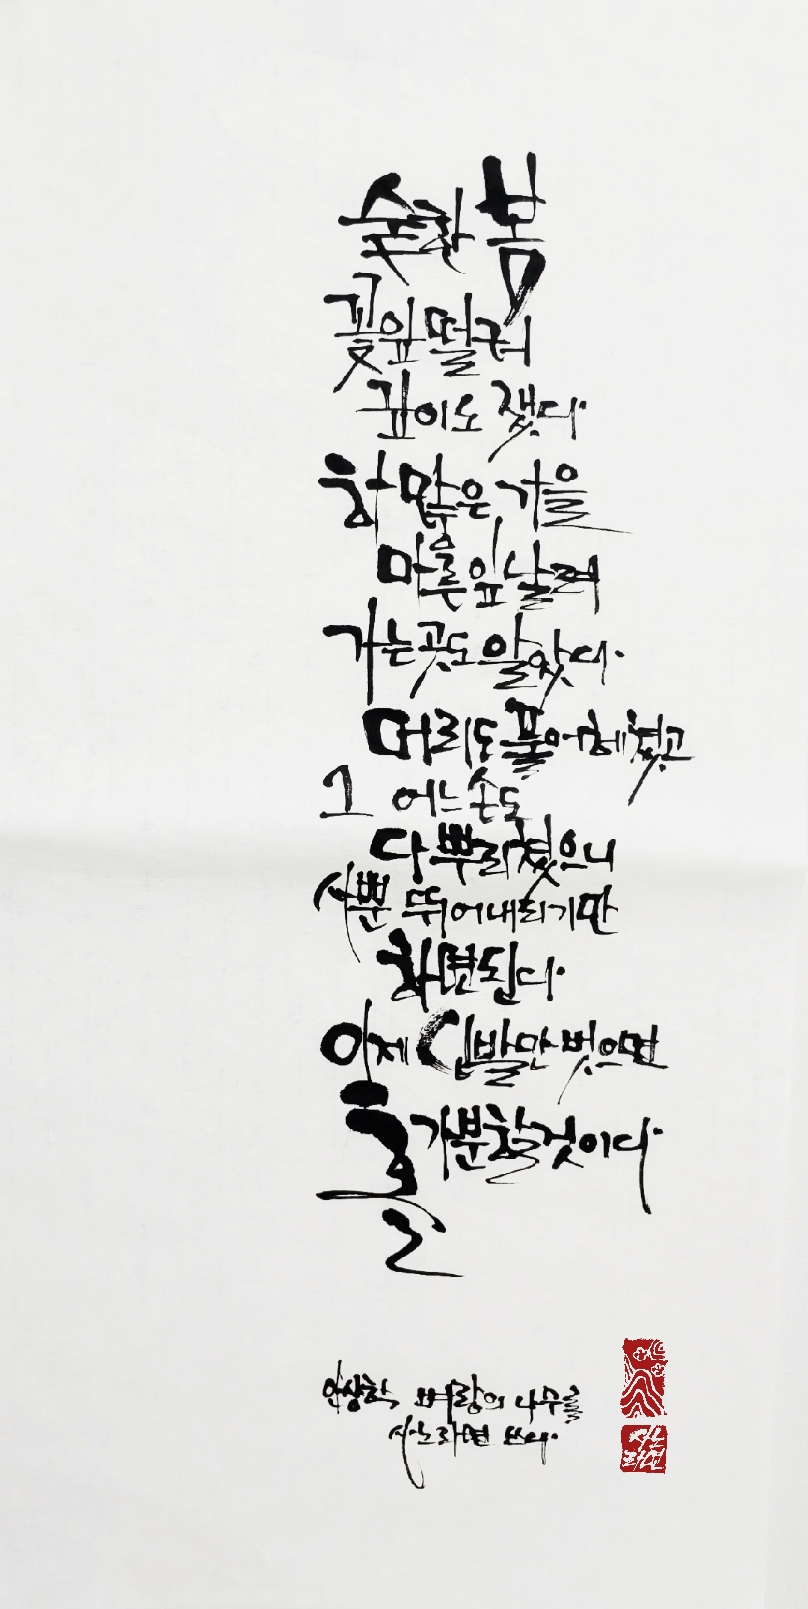 숱한 봄
꽃잎 떨궈
깊이도 쟀다.
하 많은 가을
마른 잎 날려
가는 곳도 알았다.
머리도 풀어헤쳤고
그 어느 손도
다 뿌리쳤으니
사뿐 뛰어내리기만
하면 된다.
이제 신발만 벗으면
홀가분할 것이다.
안상학 벼랑의 나무를
사노라면 쓰다.
사노
라면